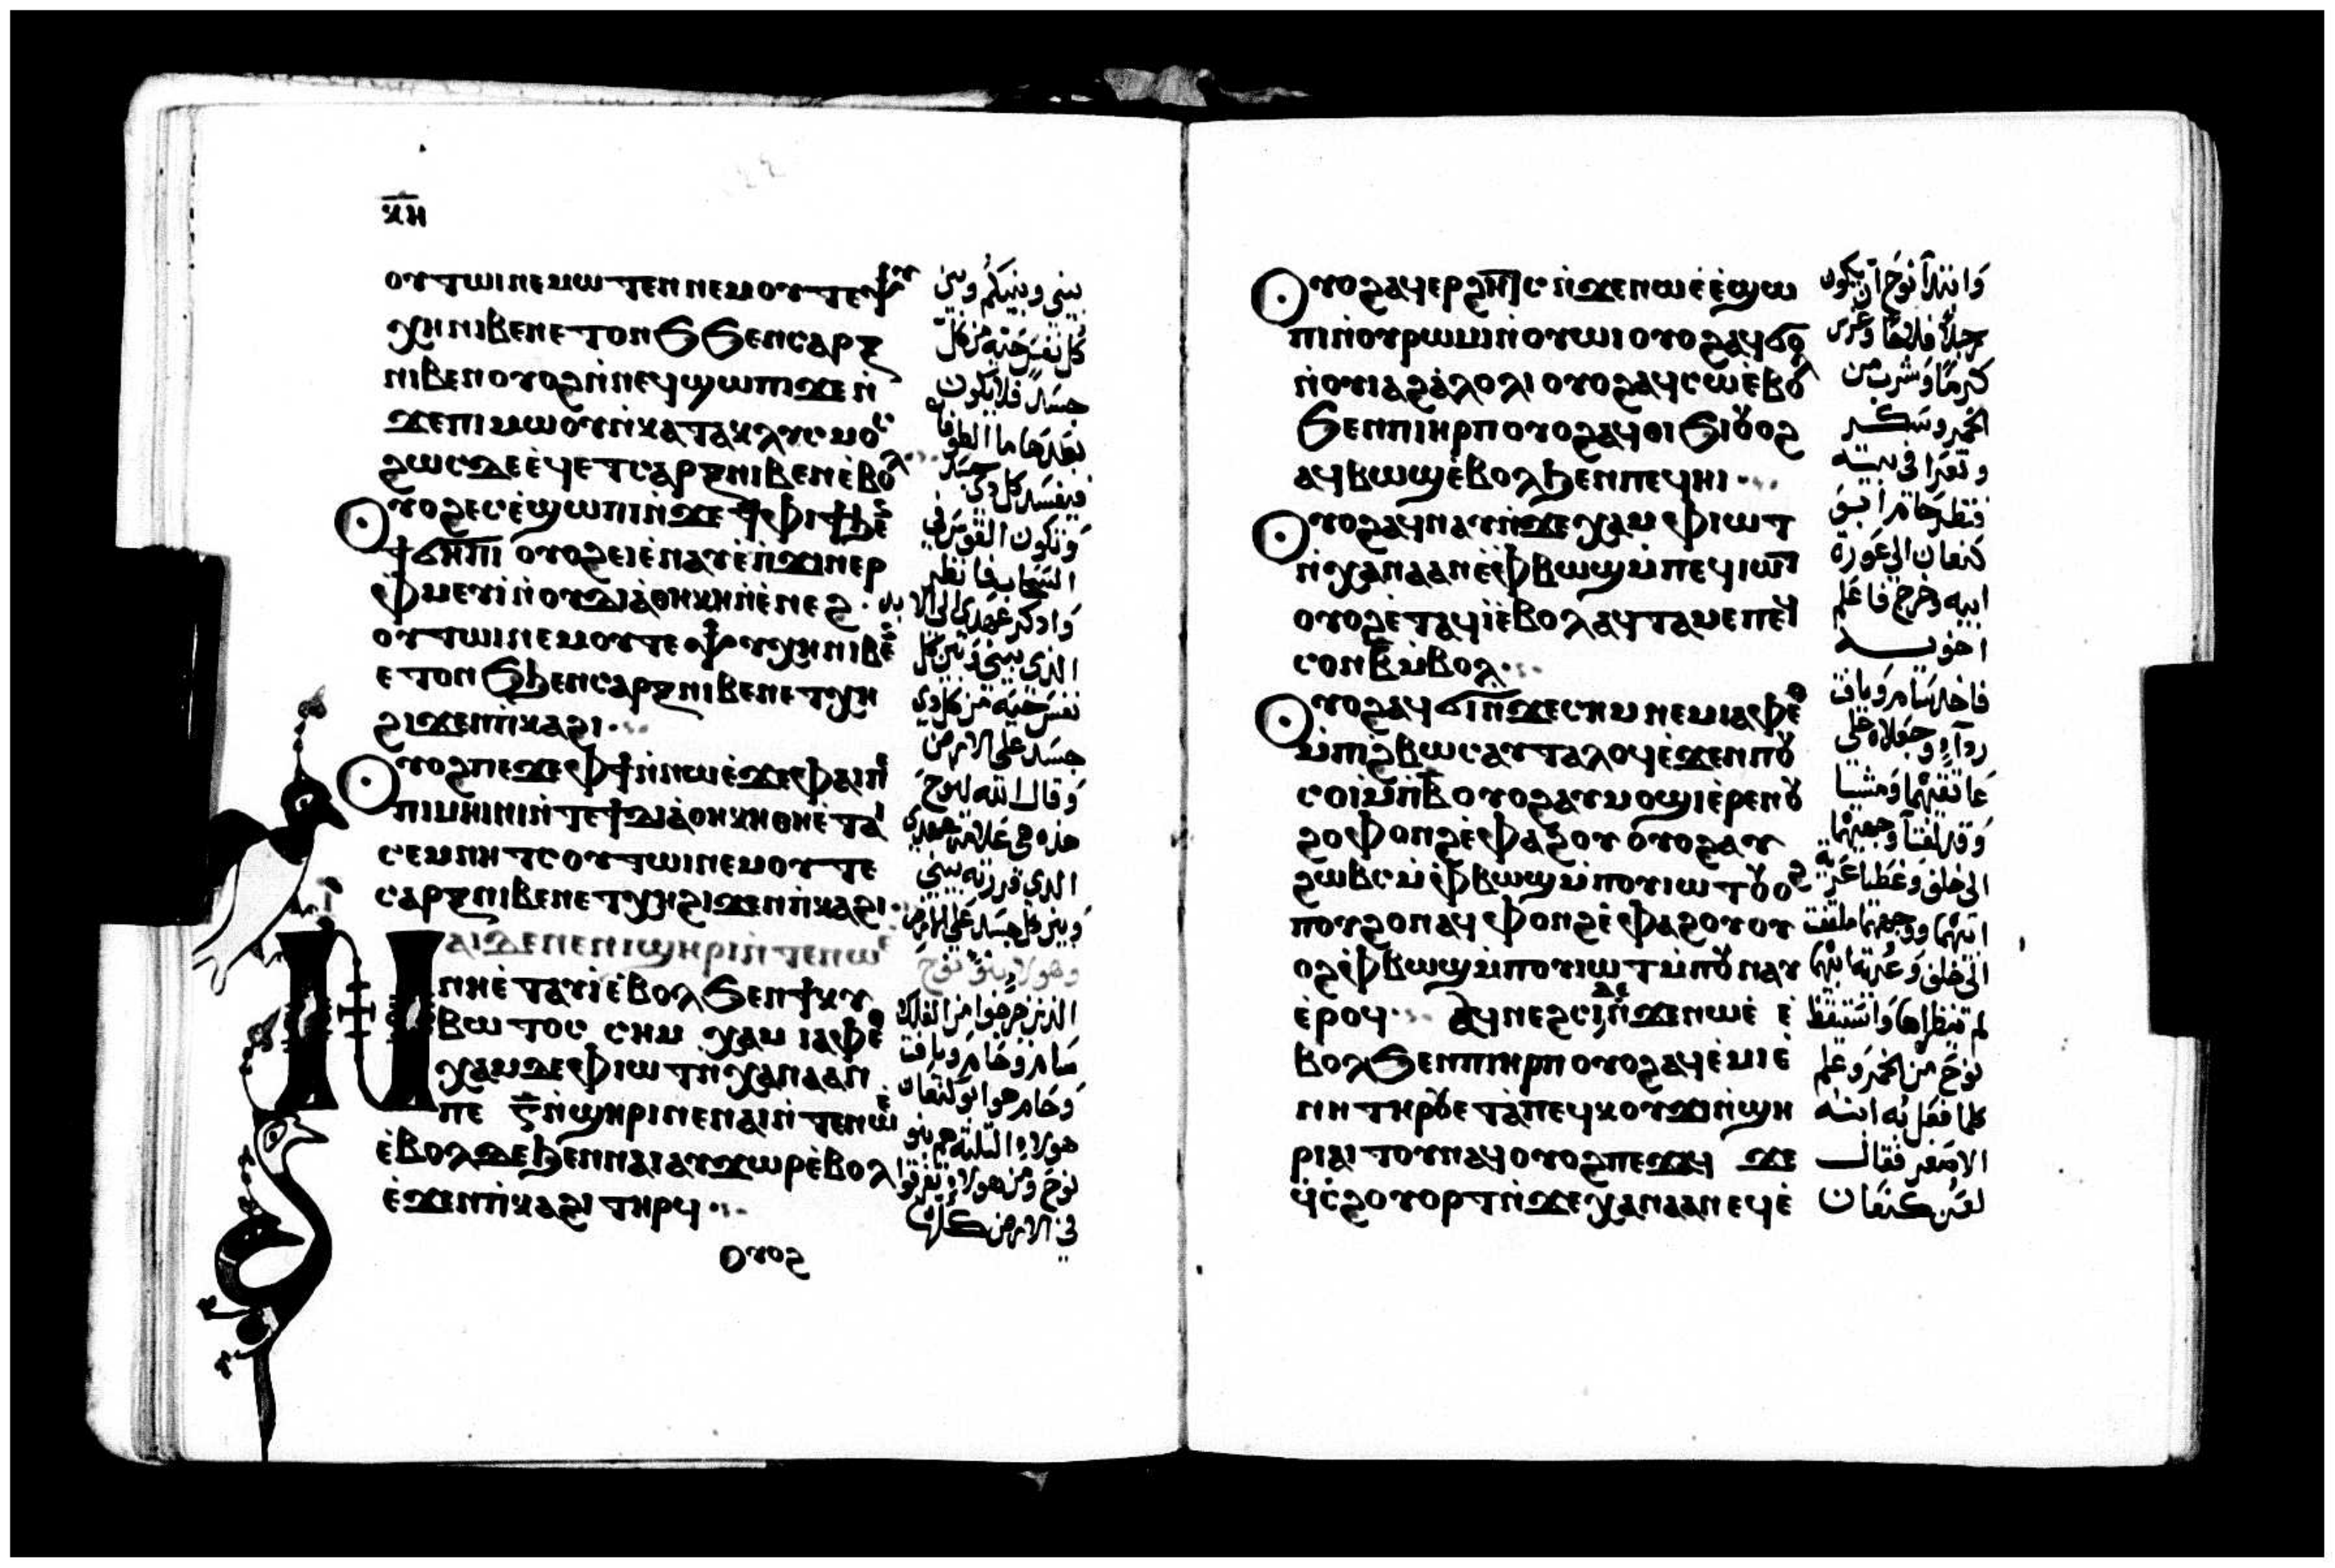 ⲕⲏ
ⲟⲩⲧⲱⲓ ⲛⲉⲙⲱⲧⲉⲛ ⲛⲉⲙ ⲟⲩⲧⲉ ⲯⲩ
ⲭⲏ ⲛⲓⲃⲉⲛ ⲉⲧⲟⲛϧ ϧⲉⲛ ⲥⲁⲣⲝ
ⲛⲓⲃⲉⲛ ⲟⲩⲟϩ ⲛ̀ⲛⲉϥϣⲱⲡⲓ ϫⲉ ⲛ̀
ϫⲉ ⲡⲓⲙⲱⲟⲩ ⲛ̀ⲕⲁⲧⲁⲕⲗⲩⲥⲙⲟⲥ
ϩⲱⲥⲇⲉ ⲉ̀ϥⲉⲧ ⲥⲁⲣⲝ ⲛⲓⲃⲉⲛ ⲉ̀ⲃⲟⲗ
Ⲟⲩⲟϩ ⲉⲥⲉ̀ϣⲱⲡⲓ ⲛ̀ϫⲉ ϯⲫⲓϯ ϧⲉⲛ
ϯϭⲏⲡⲓ ⲟⲩⲟϩ ⲉⲓⲉ̀ⲛⲁⲩ ⲉ̀ⲡ̀ϫⲓⲛⲉⲣ
ⲫⲙⲉⲩⲓ̀ ⲛ̀ⲟⲩⲇⲓⲁ̀ⲑⲏⲕⲏ ⲛ̀ⲉ̀ⲛⲉϩ
ⲟⲩⲧⲱⲓ ⲛⲉⲙ ⲟⲩⲧⲉ ⲯⲩⲭⲏ ⲛⲓⲃⲉⲛ
ⲉⲧⲟⲛϧ ϧⲉⲛ ⲥⲁⲣⲝ ⲛⲓⲃⲉⲛ ⲉⲧⲭⲏ
ϩⲓϫⲉⲛ ⲡ̀ⲕⲁϩⲓ
Ⲟⲩⲟϩ ⲡⲉϫⲉ ⲫϯ ⲛ̀ⲛⲱⲉ̀ ϫⲉ ⲫⲁⲓ ⲡⲉ
ⲡⲓⲙⲏⲓⲛⲓ ⲛ̀ⲧⲉ ϯⲇⲓⲁ̀ⲑⲏⲕⲏ ⲑⲏⲉ̀ⲧⲁⲓ
ⲥⲉⲙⲛⲏⲧⲥ ⲟⲩⲧⲱⲓ ⲛⲉⲙ ⲟⲩⲧⲉ
ⲥⲁⲣⲝ ⲛⲓⲃⲉⲛ ⲉⲧⲭⲏ ϩⲓϫⲉⲛ ⲡ̀ⲕⲁϩⲓ
Ⲛⲁⲓ ⲇⲉ ⲛⲉ ⲛⲉⲛϣⲏⲣⲓ ⲛ̀ⲧⲉ ⲛⲱⲉ̀
ⲛⲏⲉ̀ⲧⲁⲩⲓ̀ ⲉ̀ⲃⲟⲗ ϧⲉⲛ ϯⲕⲩ
ⲃⲱⲧⲟⲥ ⲥⲏⲙ ⲭⲁⲙ ⲓⲁⲫⲉⲑ
ⲭⲁⲙ ⲇⲉ ⲫⲓⲱⲧ ⲛ̀ⲭⲁⲛⲁⲁⲛ
ⲡⲉ ⲅ̅ ⲛ̀ϣⲏⲣⲓ ⲛⲉ ⲛⲁⲓ ⲛ̀ⲧⲉ ⲛⲱⲉ̀
ⲉ̀ⲃⲟⲗ ⲇⲉ ϧⲉⲛ ⲛⲁⲓ ⲁⲩϫⲱⲣ ⲉ̀ⲃⲟⲗ
ⲉ̀ϫⲉⲛ ⲡ̀ⲕⲁϩⲓ ⲧⲏⲣϥ
Ⲟⲩⲟϩ
بيني وبينكم وبين
كل نفس حيه من كل
جسد فلا يكون
بعدها ما الطوفان
فيفسد كل ذي جسد
وتكون القوس في
السحاب فانظر
واذكر عهدي الى الابد
الذي بيني وبين كل
نفس حيه من كل ذي
جسد على الارض
وقال الله لنوح
هذه هي علامة عهدي
الذي قررته بيني
وبين كل جسد على الارض
وهولاء بنو نوح
الذين خرجوا من الفلك
سام وحام ويافت
وحام هو ابو كنعان
هولاء التلته هم بنو
نوح ومن هولاء تفرقوا
في الارض كلها
Ⲟⲩⲟϩ ⲁϥⲉⲣϩⲏⲧⲥ ⲛ̀ϫⲉ ⲛⲱⲉ̀ ⲉ̀ϣⲱ
ⲡⲓ ⲛ̀ⲟⲩⲣⲱⲙⲓ ⲛ̀ⲟⲩⲱⲓ ⲟⲩⲟϩ ⲁϥϭⲟ
ⲛ̀ⲟⲩⲓⲁϩⲁ̀ⲗⲟⲗⲓ ⲟⲩⲟϩ ⲁϥⲥⲱ ⲉ̀ⲃⲟⲗ
ϧⲉⲛ ⲡⲓⲏⲣⲡ ⲟⲩⲟϩ ⲁϥⲑⲓϧⲓ ⲟⲩⲟϩ
ⲁϥⲃⲱϣ ⲉ̀ⲃⲟⲗ ϧⲉⲛ ⲡⲉϥⲏⲓ
Ⲟⲩⲟϩ ⲁϥⲛⲁⲩ ⲛ̀ϫⲉ ⲭⲁⲙ ⲫⲓⲱⲧ
ⲛ̀ⲭⲁⲛⲁⲁⲛ ⲉ̀ⲫⲃⲱϣ ⲙ̀ⲡⲉϥⲓⲱⲧ
ⲟⲩⲟϩ ⲉ̀ⲧⲁϥⲓ̀ ⲉ̀ⲃⲟⲗ ⲁϥⲧⲁⲙⲉ ⲡⲉϥ
ⲥⲟⲛ ⲃ̅ ⲙ̀ⲃⲟⲗ
Ⲟⲩⲟϩ ⲁϥϭⲓ ⲛ̀ϫⲉ ⲥⲏⲙ ⲛⲉⲙ ⲓⲁⲫⲉⲑ
ⲙ̀ⲡⲓϩ̀ⲃⲱⲥ ⲁⲩⲧⲁⲗⲟϥ ⲉ̀ϫⲉⲛ ⲡⲟⲩ
ⲥⲟⲓ ⲙ̀ⲡⲃ̅ ⲟⲩⲟϩ ⲁⲩⲙⲟϣⲓ ⲉ̀ⲣⲉ ⲛⲟⲩ
ϩⲟ ⲫⲟⲛϩ ⲉ̀ⲫⲁϩⲟⲩ ⲟⲩⲟϩ ⲁⲩ
ϩⲱⲃⲥ ⲙ̀ⲫⲃⲱϣ ⲙ̀ⲡⲟⲩⲓⲱⲧ ⲟⲩⲟϩ
ⲡⲟⲩϩⲟ ⲛⲁϥⲫⲟⲛϩ ⲉ̀ⲫⲁϩⲟⲩ ⲟⲩ
ⲟϩ ⲉ̀ⲫⲃⲱϣ ⲙ̀ⲡⲟⲩⲓⲱⲧ ⲙ̀ⲡⲟⲩⲛⲁⲩ
ⲉ̀ⲣⲟϥ Ⲁϥⲛⲉϩⲥⲓ ⲇⲉ ⲛ̀ϫⲉ ⲛⲱⲉ̀ ⲉ̀
ⲃⲟⲗ ϧⲉⲛ ⲡⲓⲏⲣⲡ ⲟⲩⲟϩ ⲁϥⲉ̀ⲙⲓ ⲉ̀
ⲛⲏ ⲧⲏⲣⲟⲩ ⲉ̀ⲧⲁ ⲡⲉϥⲕⲟⲩϫⲓ ⲛ̀ϣⲏ
ⲣⲓ ⲁⲓⲧⲟⲩ ⲛⲁϥ ⲟⲩⲟϩ ⲡⲉϫⲁϥ ϫⲉ
ϥ̀ⲥ̀ϩⲟⲩⲟⲣⲧ ⲛ̀ϫⲉ ⲭⲁⲛⲁⲁⲛ ⲉϥⲉ̀
وابتدأ نوح ان يكون
رجلا فلاحا وغرس
كرما وشرب من
الخمر وسكر
وتعرا في بيته
فنظر حام ابو
كنعان الى عورة
ابيه وخرج فاعلم
اخويه
فاخد سام ويافت
ردآ وجعلاه على
عاتقيهما ومشيا
الى خلف وغطيا عرية
ابيهما ووجههما ملتفت
الى خلف وعرية ابيهما
لم ينظراها واستيقظ
نوح من الخمر وعلم
كلما فعل به ابنه
الاصغر فقال
لعين كنعان